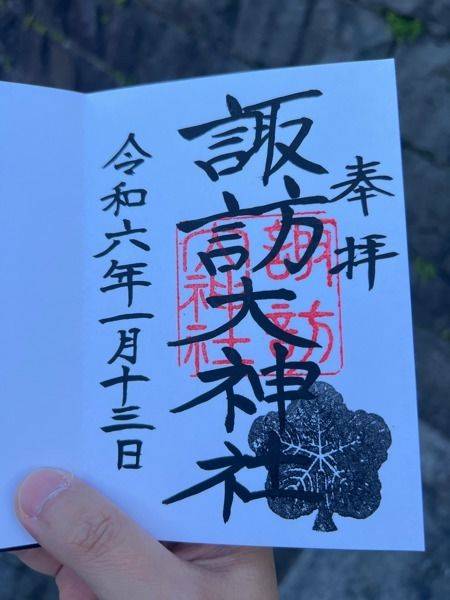 奉拝
諏訪大神社
諏訪
大神社
令和六年一月十三日